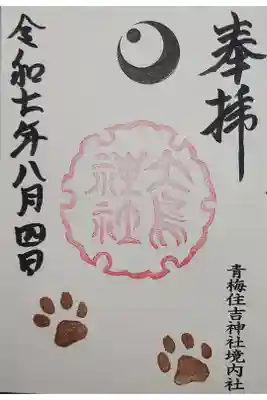 奉拝
大鳥神社
青梅住吉神社境内社
令和七年八月四日